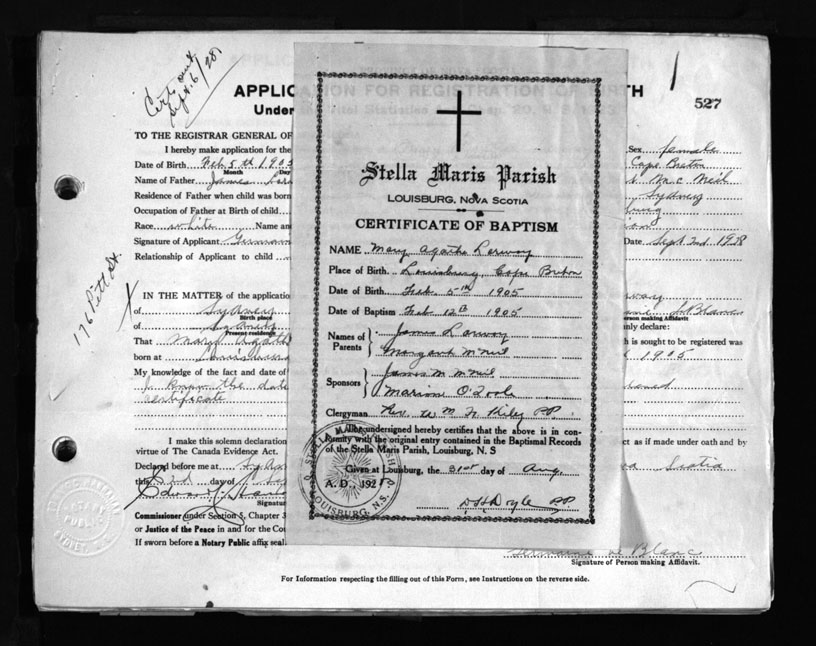 Cert out
Sept. 6/28
APPLIC
TH
527
Under
TO THE REGISTRAR GENERAL OF
I hereby make application for the
Date of Birth Feb 5th 1905
Month Day
Name of Father James
Residence of Father when child was born
Occupation of Father at Birth of child
Race white Name an
Signature of Applicant
Relationship of Applicant to child
Sex female
Cape Breton
Mc Neil
Sydney
Date Sept 3rd 1928
176 Pitt St.
IN THE MATTER of the applicatio
of Sydney
Birth place
of Sydney
Present residence
That Mary Agath
born at Louisburg
My knowledge of the fact and date of
I know the date
certificate
I make this solemn declaration
virtue of The Canada Evidence Act.
Declared before me at Sydney
this 3rd day of Se
Signatu
Commissioner under Section 5, Chapter 3
or Justice of the Peace in and for the Cou
If sworn before a Notary Public affix seal.
LeBlanc
erson making Affidavit
nly declare:
h is sought to be registered was
1905
ct as if made under oath and by
Scotia
Germaine Le Blanc
Signature of Person making Affidavit.
For Information respecting the filling out of this Form, see Instructions on the reverse side.
Stella Maris Parish
LOUISBURG, NOVA SCOTIA
CERTIFICATE OF BAPTISM
NAME Mary Agatha Larway
Place of Birth. Louisburg, Cape Breton
Date of Birth Feb. 5th 1905
Date of Baptism Feb. 12th 1905
Names of Parents James Larway
Margaret McNeil
Sponsors James M. McNeil
Marion O'Toole
Clergyman Rev. W M F Kiley P.P.
The undersigned hereby certifies that the above is in con-
formity with the original entry contained in the Baptismal Records
of the Stella Maris Parish, Louisburg, N. S
Given at Louisburg, the 31st day of Aug.
A. D., 1928
Doyle P.P.
STELLA MARIS
LOUISBURG, N.S.